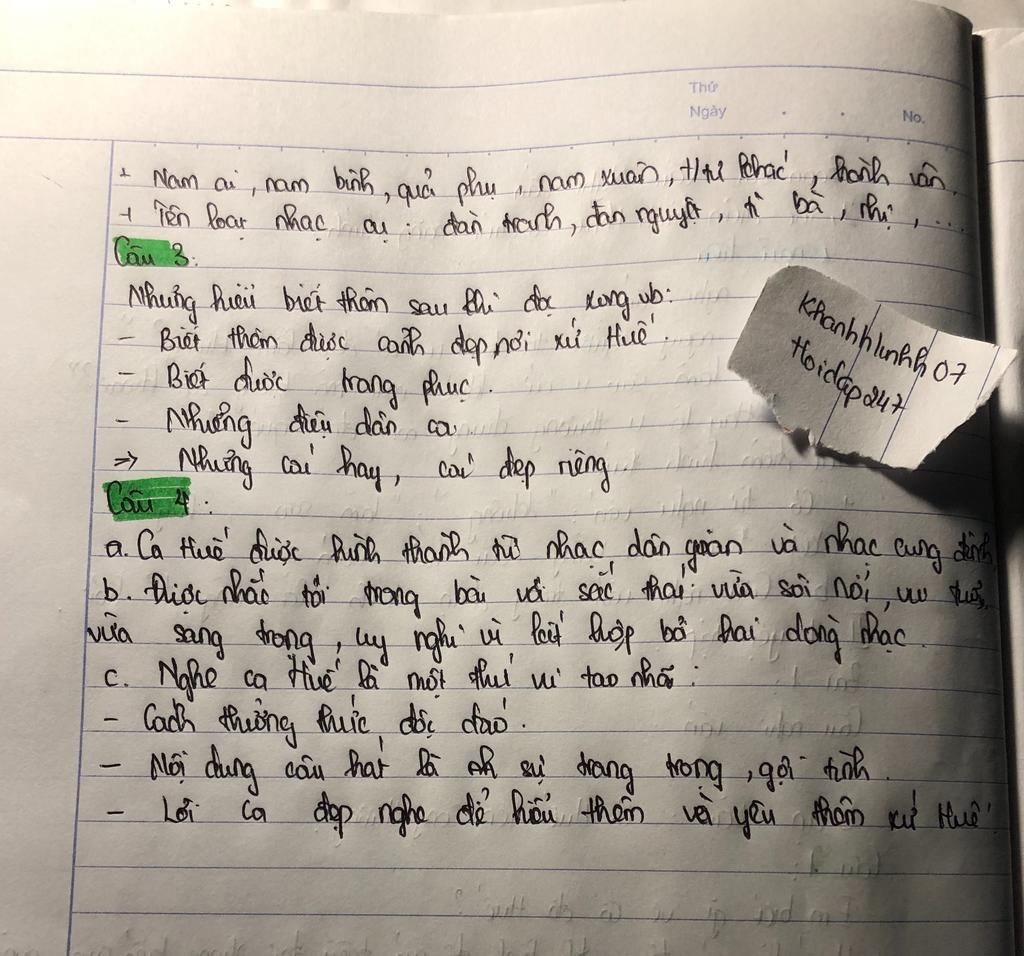 Thứ
Ngày . . No.
+ Nam ai, nam bình, quả phụ, nam xuân, t/tư khác, hành vân.
+ Tên loại nhạc cụ : đàn tranh, đàn nguyệt, tì bà, nhị, ...
Câu 3:
Những hiểu biết thêm sau khi đọc xong vb:
- Biết thêm được cảnh đẹp nơi xứ Huế.
- Biết được trang phục.
- Những điệu dân ca
=> Những cái hay, cái đẹp riêng.
Câu 4 :
a. Ca Huế được hình thành từ nhạc dân gian và nhạc cung đình
b. Được nhắc tới trong bài với sắc thái vừa sôi nổi, vui tươi,
vừa sang trọng, uy nghi vì kết hợp bở hai dòng nhạc.
c. Nghe ca Huế là một thú vị tao nhã :
- Cách thưởng thức độc đáo.
- Nội dung câu hát là sự trang trọng, gợi tình.
- Lời ca đẹp nghe để hiểu thêm và yêu thêm xứ Huế
Khanhhlinhh07
Hoidap247